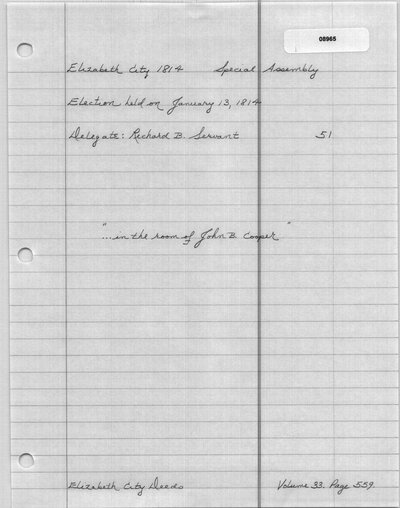 08965
Elizabeth City 1814 Special Assembly
Election held on January 13, 1814
Delegate: Richard B. Servant 51
"...in the room of John B. Cooper"
Elizabeth City Deeds Volume 33. Page 559.